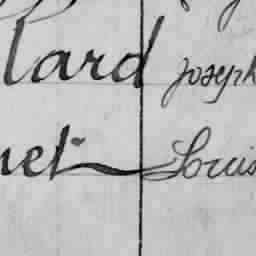 lard Joseph
net Louis